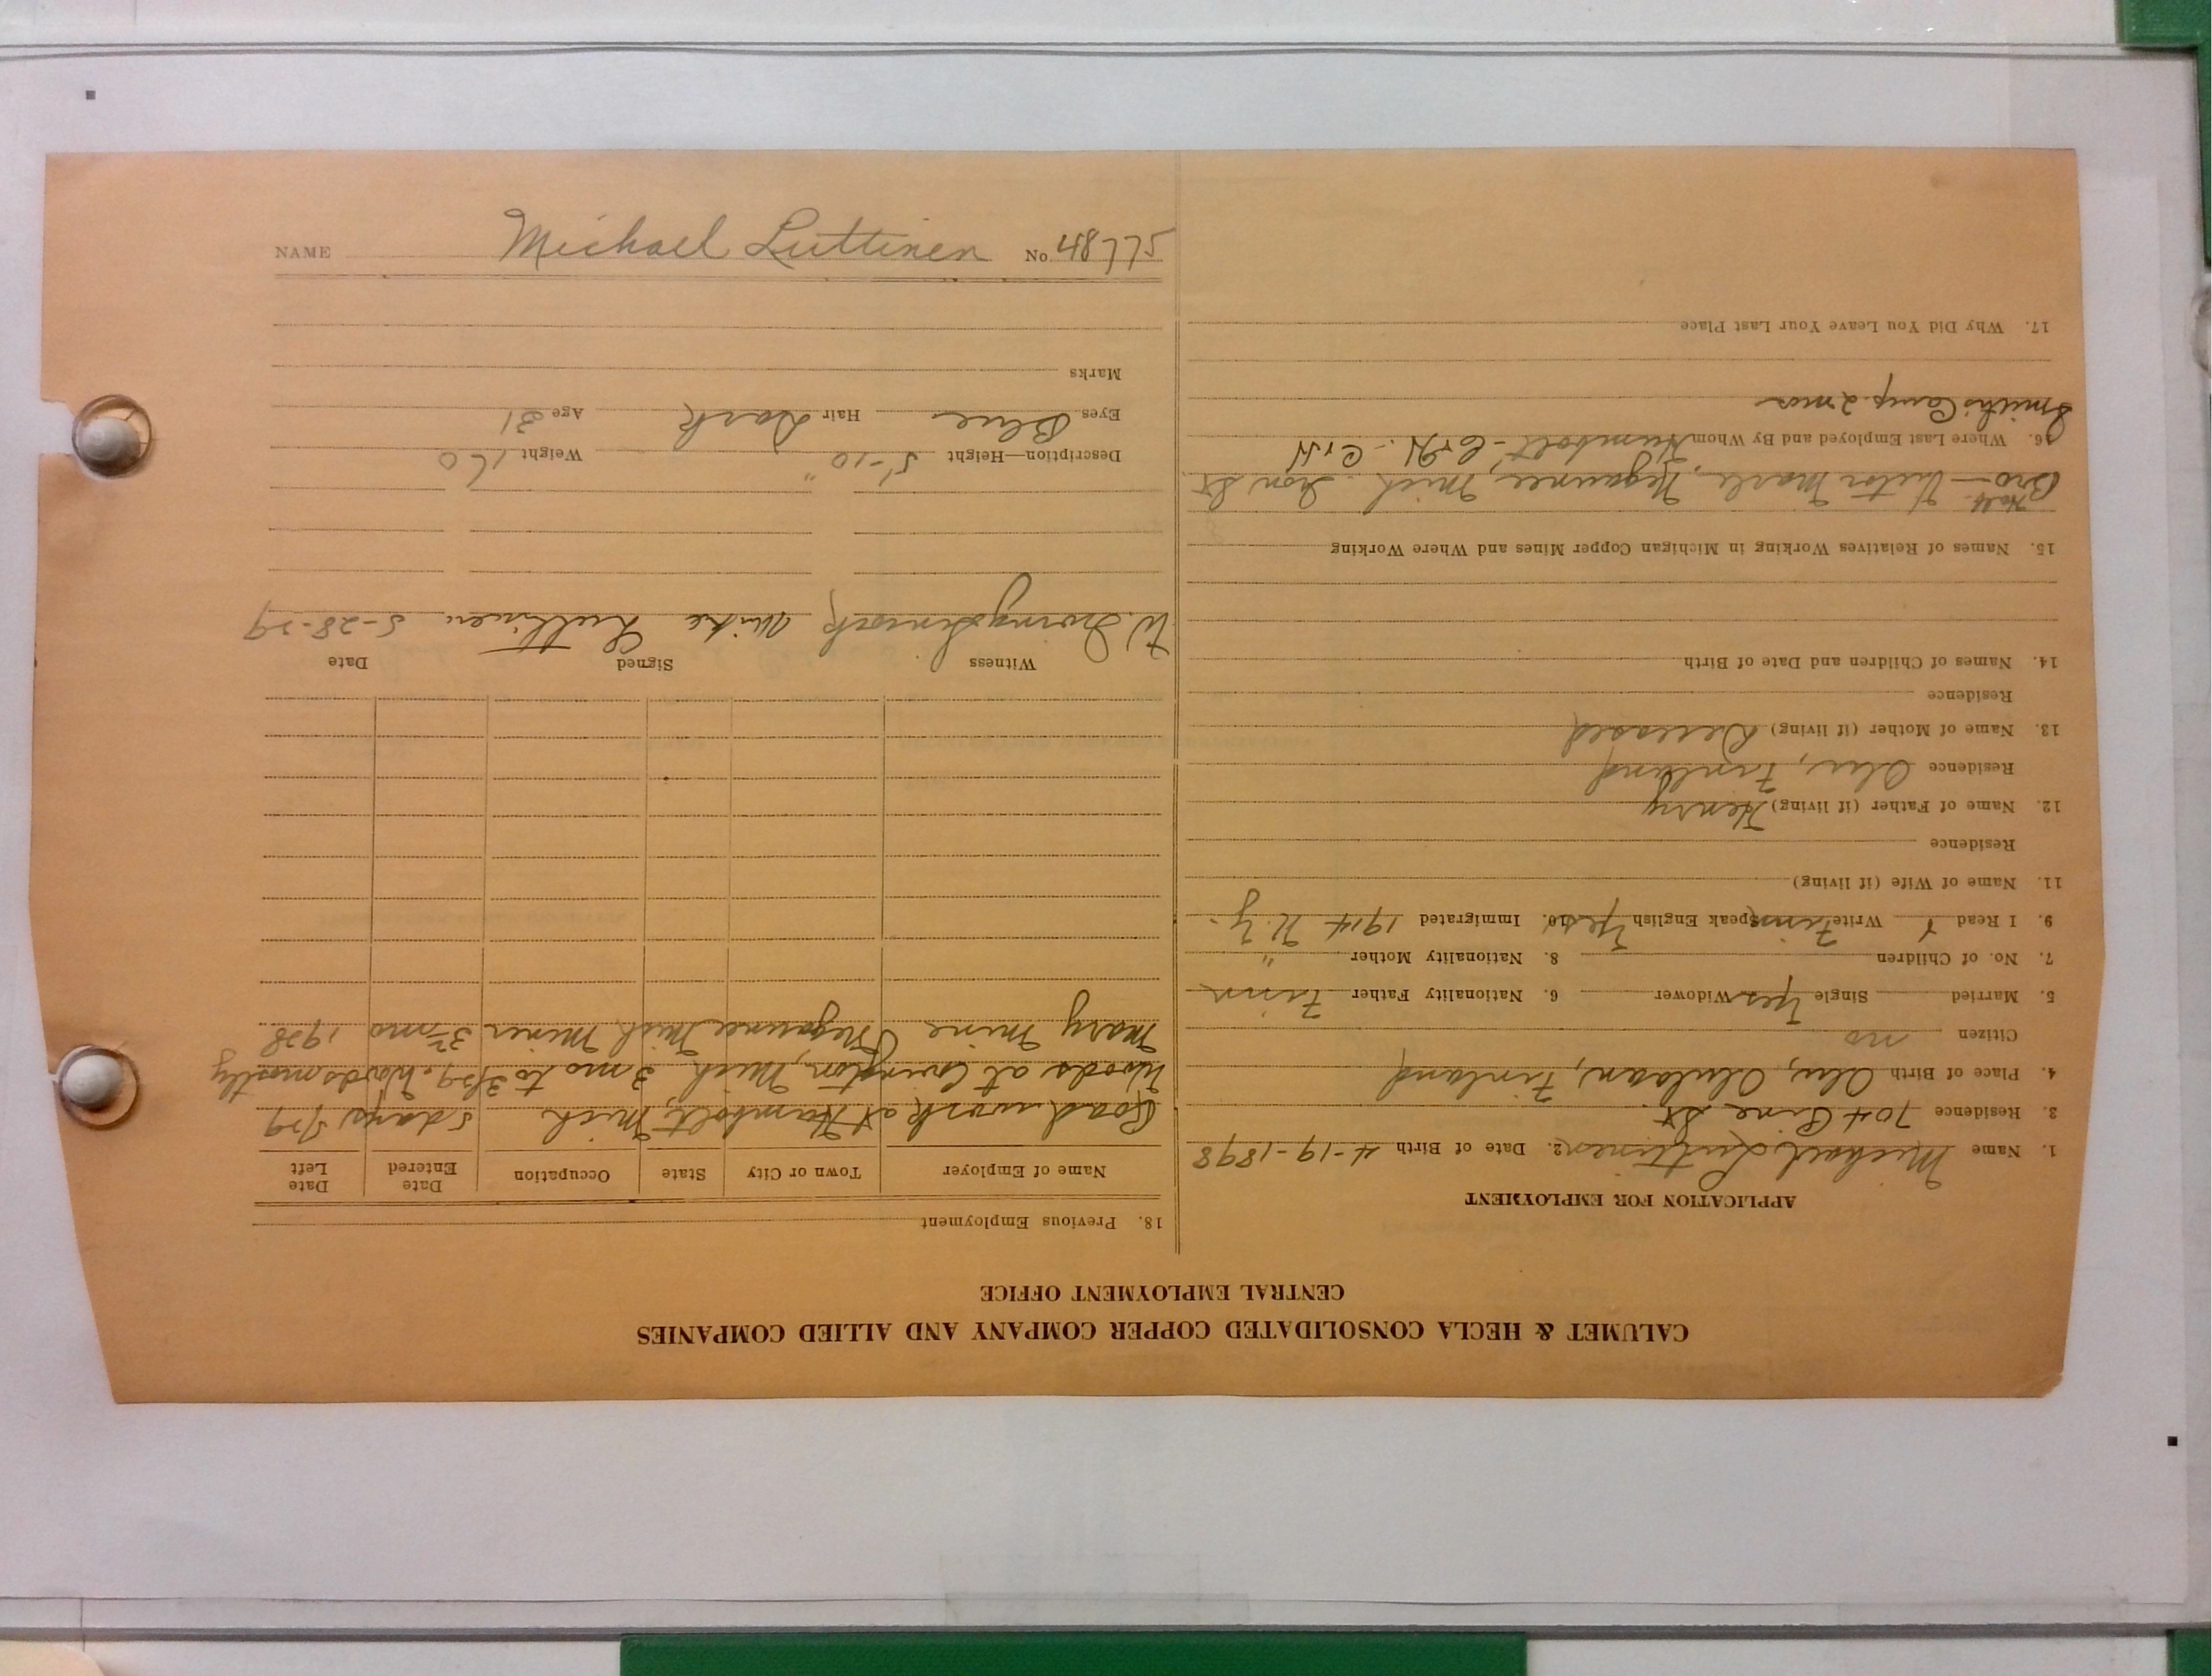 CALUMET & HECLA CONSOLIDATED COPPER COMPANY AND ALLIED COMPANIES
CENTRAL EMPLOYMENT OFFICE
APPLICATION FOR EMPLOYMENT
1. Name Michael Luttinen 2. Date of Birth 4-19-1898
3. Residence 704 Pine St.
4. Place of Birth Olu, Olulaan, Finland
Citizen no
5. Married Single Yes Widower 6. Nationality Father Finn
7. No. of Children 8. Nationality Mother "
9. I Read Y Write Finn Speak English Yes 10. Immigrated 1914 N.Y.
11. Name of Wife (if living)
Residence
12. Name of Father (if living) Henry
Residence Olu, Finland
13. Name of Mother (if living) Deceased
Residence
14. Names of Children and Date of Birth
15. Names of Relatives Working in Michigan Copper Mines and Where Working
Half
Bro - Victor Negaunee, Mich. Iron St.
16. Where Last Employed and By Whom Humbolt, C+H - C+H
Smith's Camp 2 mos
17. Why Did You Leave Your Last Place
18. Previous Employment
Name of Employer Town or City State Occupation Date Entered Date Left
Road work at Humbolt, Mich 5 days 5/29
Woods at Covington, Mich 3 mo to 3/29. Woods mostly
Mary Mine Negaunee Mich Miner 3 mo 1928
Witness Signed Date
W. Irving Mike Luttinen 5-28-29
Description—Height 5'-10" Weight 160
Eyes Blue Hair Dark Age 31
Marks
NAME Michael Luttinen No. 48775